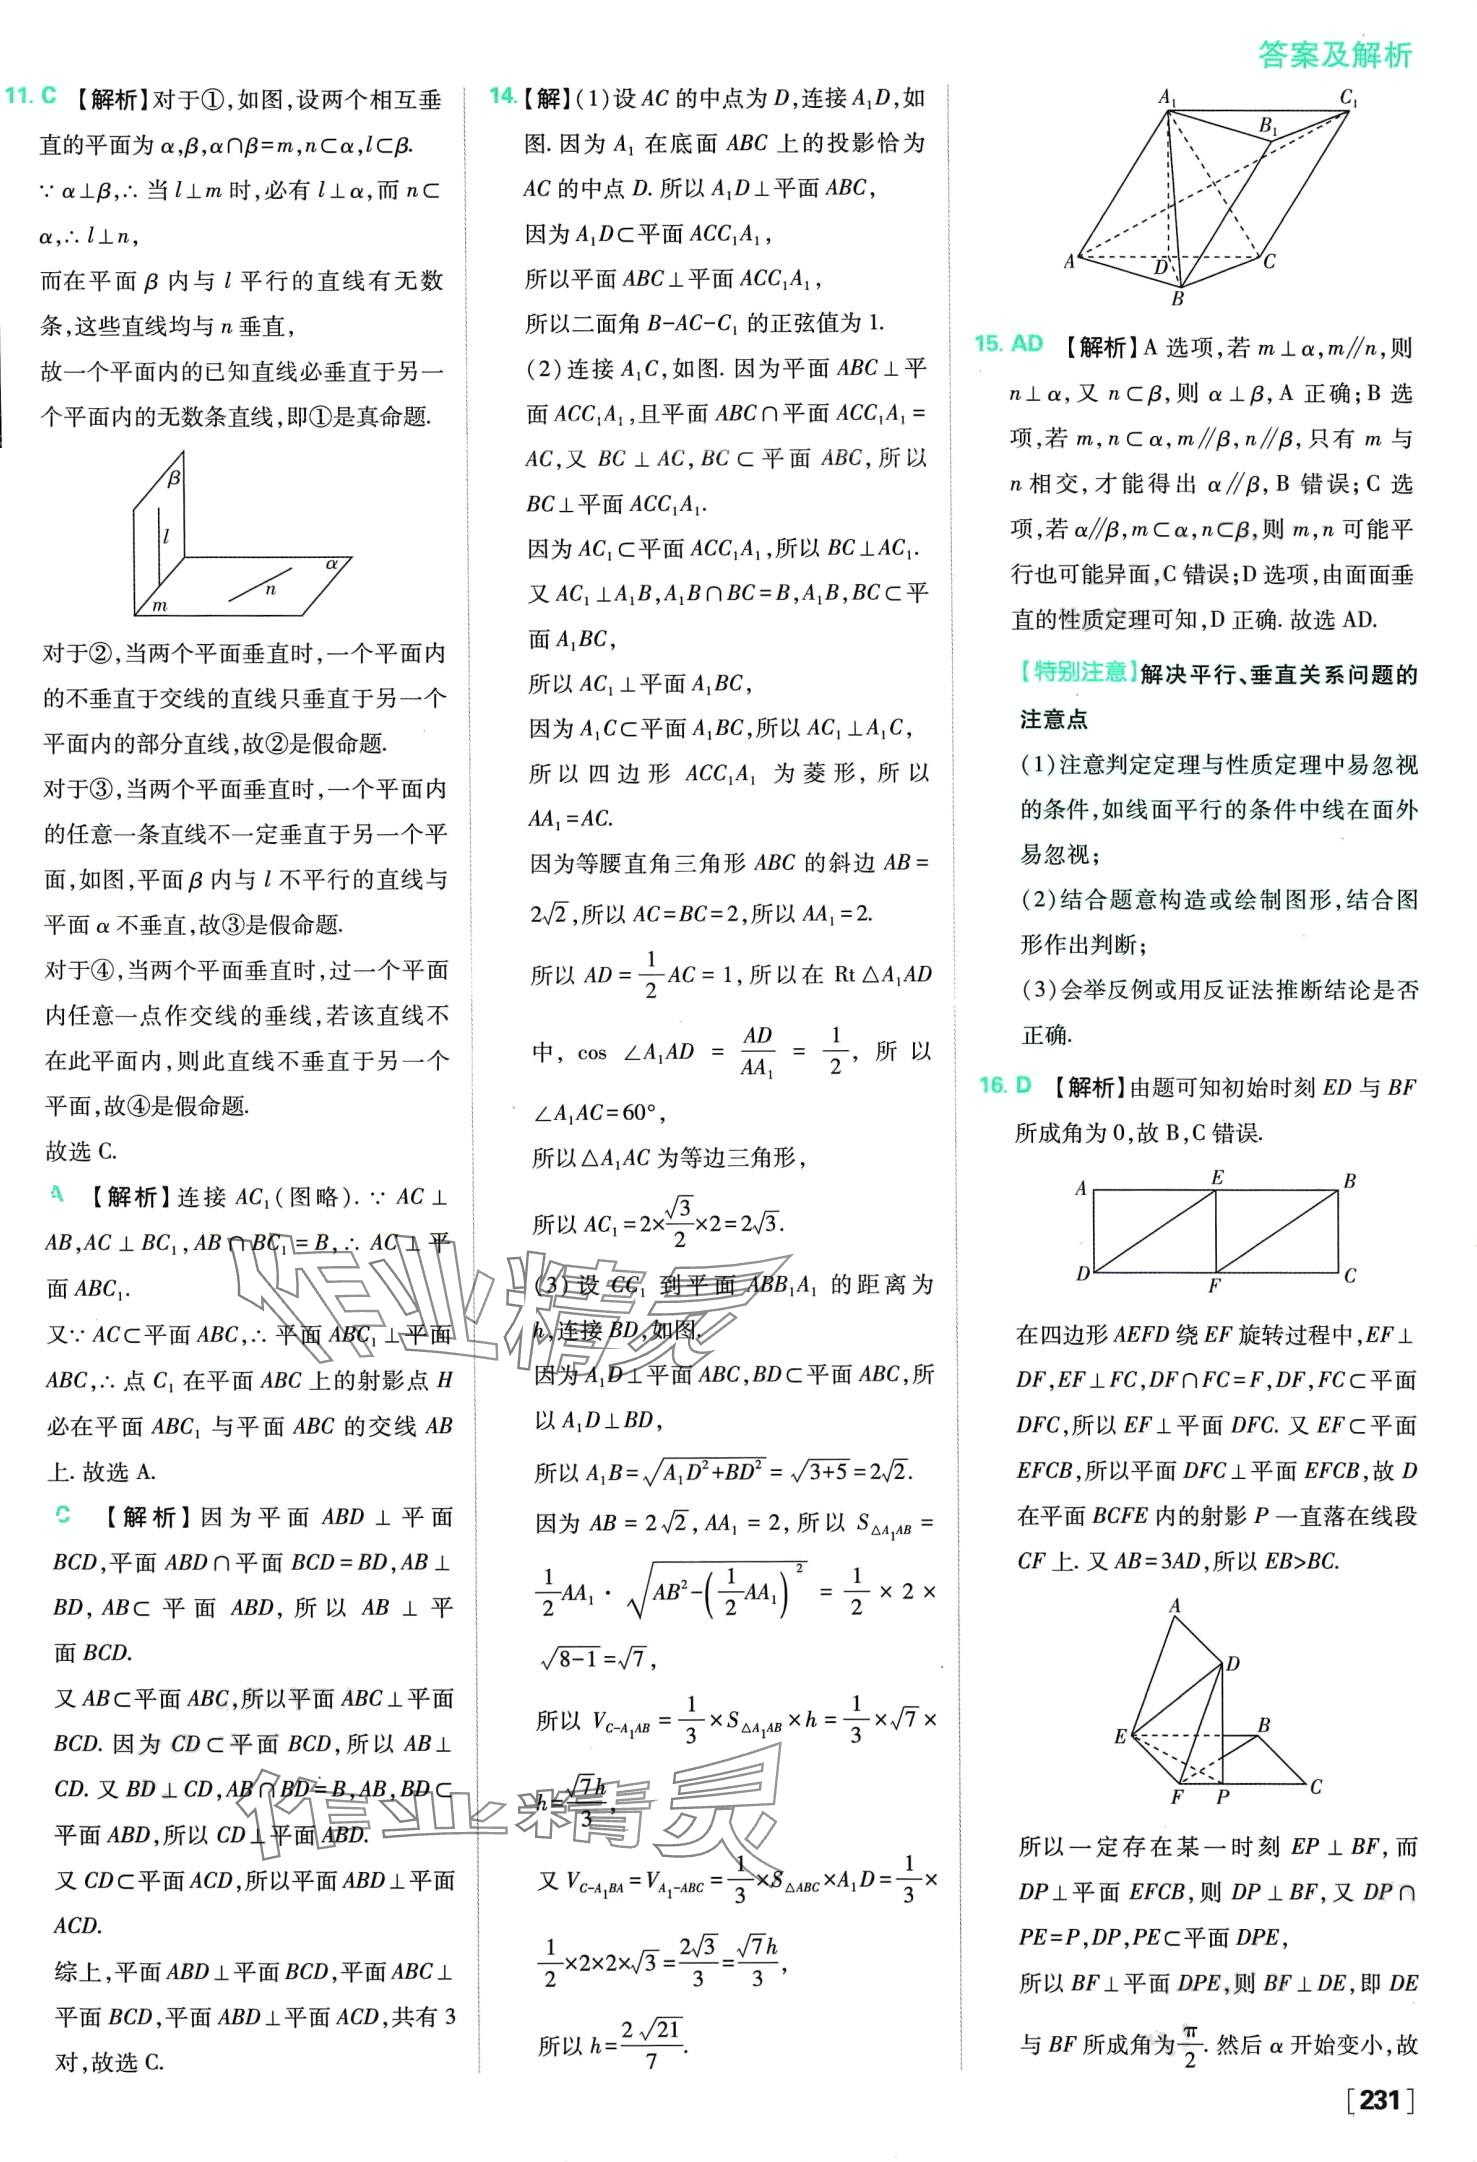 答案及解析
11. C 【解析】对于①,如图,设两个相互垂
直的平面为 α,β,α∩β=m,n⊂α,l⊂β.
∵ α⊥β,∴ 当 l⊥m 时,必有 l⊥α,而 n⊂
α,∴ l⊥n,
而在平面 β 内与 l 平行的直线有无数
条,这些直线均与 n 垂直,
故一个平面内的已知直线必垂直于另一
个平面内的无数条直线,即①是真命题.
β
l
α
n
m
对于②,当两个平面垂直时,一个平面内
的不垂直于交线的直线只垂直于另一个
平面内的部分直线,故②是假命题.
对于③,当两个平面垂直时,一个平面内
的任意一条直线不一定垂直于另一个平
面,如图,平面 β 内与 l 不平行的直线与
平面 α 不垂直,故③是假命题.
对于④,当两个平面垂直时,过一个平面
内任意一点作交线的垂线,若该直线不
在此平面内,则此直线不垂直于另一个
平面,故④是假命题.
故选 C.
A 【解析】连接 AC₁(图略). ∵ AC⊥
AB,AC⊥BC₁,AB∩BC₁=B,∴ AC⊥平
面 ABC₁.
又∵ AC⊂平面 ABC,∴ 平面 ABC₁⊥平面
ABC,∴ 点 C₁ 在平面 ABC 上的射影点 H
必在平面 ABC₁ 与平面 ABC 的交线 AB
上. 故选 A.
C 【解析】因为平面 ABD⊥平面
BCD,平面 ABD∩平面 BCD=BD,AB⊥
BD,AB⊂平面 ABD,所以 AB⊥平
面 BCD.
又 AB⊂平面 ABC,所以平面 ABC⊥平面
BCD. 因为 CD⊂平面 BCD,所以 AB⊥
CD. 又 BD⊥CD,AB∩BD=B,AB,BD⊂
平面 ABD,所以 CD⊥平面 ABD.
又 CD⊂平面 ACD,所以平面 ABD⊥平面
ACD.
综上,平面 ABD⊥平面 BCD,平面 ABC⊥
平面 BCD,平面 ABD⊥平面 ACD,共有 3
对,故选 C.
14.【解】(1)设 AC 的中点为 D,连接 A₁D,如
图. 因为 A₁ 在底面 ABC 上的投影恰为
AC 的中点 D. 所以 A₁D⊥平面 ABC,
因为 A₁D⊂平面 ACC₁A₁,
所以平面 ABC⊥平面 ACC₁A₁,
所以二面角 B-AC-C₁ 的正弦值为 1.
(2)连接 A₁C,如图. 因为平面 ABC⊥平
面 ACC₁A₁,且平面 ABC∩平面 ACC₁A₁=
AC,又 BC⊥AC,BC⊂平面 ABC,所以
BC⊥平面 ACC₁A₁.
因为 AC₁⊂平面 ACC₁A₁,所以 BC⊥AC₁.
又 AC₁⊥A₁B,A₁B∩BC=B,A₁B,BC⊂平
面 A₁BC,
所以 AC₁⊥平面 A₁BC,
因为 A₁C⊂平面 A₁BC,所以 AC₁⊥A₁C,
所以四边形 ACC₁A₁ 为菱形,所以
AA₁=AC.
因为等腰直角三角形 ABC 的斜边 AB=
2√2,所以 AC=BC=2,所以 AA₁=2.
所以 AD=1/2 AC=1,所以在 Rt△A₁AD
中, cos ∠A₁AD = AD/AA₁ = 1/2, 所以
∠A₁AC=60°,
所以△A₁AC 为等边三角形,
所以 AC₁=2×√3/2×2=2√3.
(3)设 CC₁ 到平面 ABB₁A₁ 的距离为
h,连接 BD,如图.
因为 A₁D⊥平面 ABC,BD⊂平面 ABC,所
以 A₁D⊥BD,
所以 A₁B=√(A₁D²+BD²)=√(3+5)=2√2.
因为 AB=2√2,AA₁=2,所以 S△A₁AB=
1/2 AA₁·√(AB²-(1/2 AA₁)²) = 1/2 × 2 ×
√(8-1)=√7,
所以 V_C-A₁AB=1/3×S△A₁AB×h=1/3×√7×
h=√7h/3,
又 V_C-A₁BA=V_A₁-ABC=1/3×S△ABC×A₁D=1/3×
1/2×2×2×√3=2√3/3=√7h/3,
所以 h=2√21/7.
A₁ C₁
B₁
A D C
B
15. AD 【解析】A 选项,若 m⊥α,m∥n,则
n⊥α,又 n⊂β,则 α⊥β,A 正确;B 选
项,若 m,n⊂α,m∥β,n∥β,只有 m 与
n 相交,才能得出 α∥β,B 错误;C 选
项,若 α∥β,m⊂α,n⊂β,则 m,n 可能平
行也可能异面,C 错误;D 选项,由面面垂
直的性质定理可知,D 正确. 故选 AD.
【特别注意】解决平行、垂直关系问题的
注意点
(1)注意判定定理与性质定理中易忽视
的条件,如线面平行的条件中线在面外
易忽视;
(2)结合题意构造或绘制图形,结合图
形作出判断;
(3)会举反例或用反证法推断结论是否
正确.
16. D 【解析】由题可知初始时刻 ED 与 BF
所成角为 0,故 B,C 错误.
A E B
D F C
在四边形 AEFD 绕 EF 旋转过程中,EF⊥
DF,EF⊥FC,DF∩FC=F,DF,FC⊂平面
DFC,所以 EF⊥平面 DFC. 又 EF⊂平面
EFCB,所以平面 DFC⊥平面 EFCB,故 D
在平面 BCFE 内的射影 P 一直落在线段
CF 上. 又 AB=3AD,所以 EB>BC.
A
D
E B
F P C
所以一定存在某一时刻 EP⊥BF,而
DP⊥平面 EFCB,则 DP⊥BF,又 DP∩
PE=P,DP,PE⊂平面 DPE,
所以 BF⊥平面 DPE,则 BF⊥DE,即 DE
与 BF 所成角为 π/2. 然后 α 开始变小,故
[231]
作业精灵
作业精灵